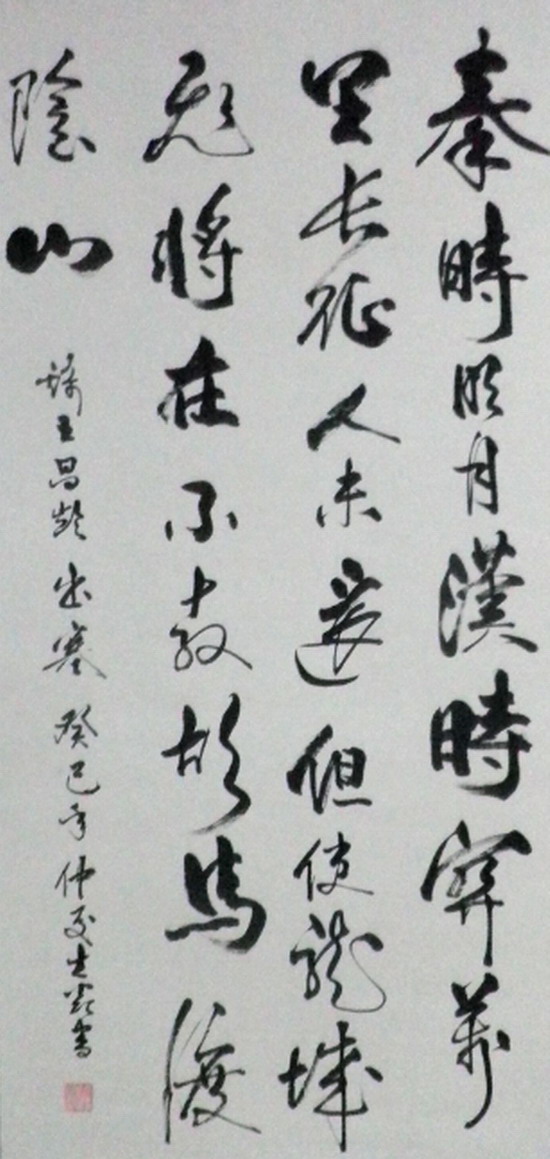 秦時明月漢時關萬
里長征人未還但使龍城
飛將在不教胡馬渡
陰山
錄王昌齡出塞 癸巳年仲夏 書